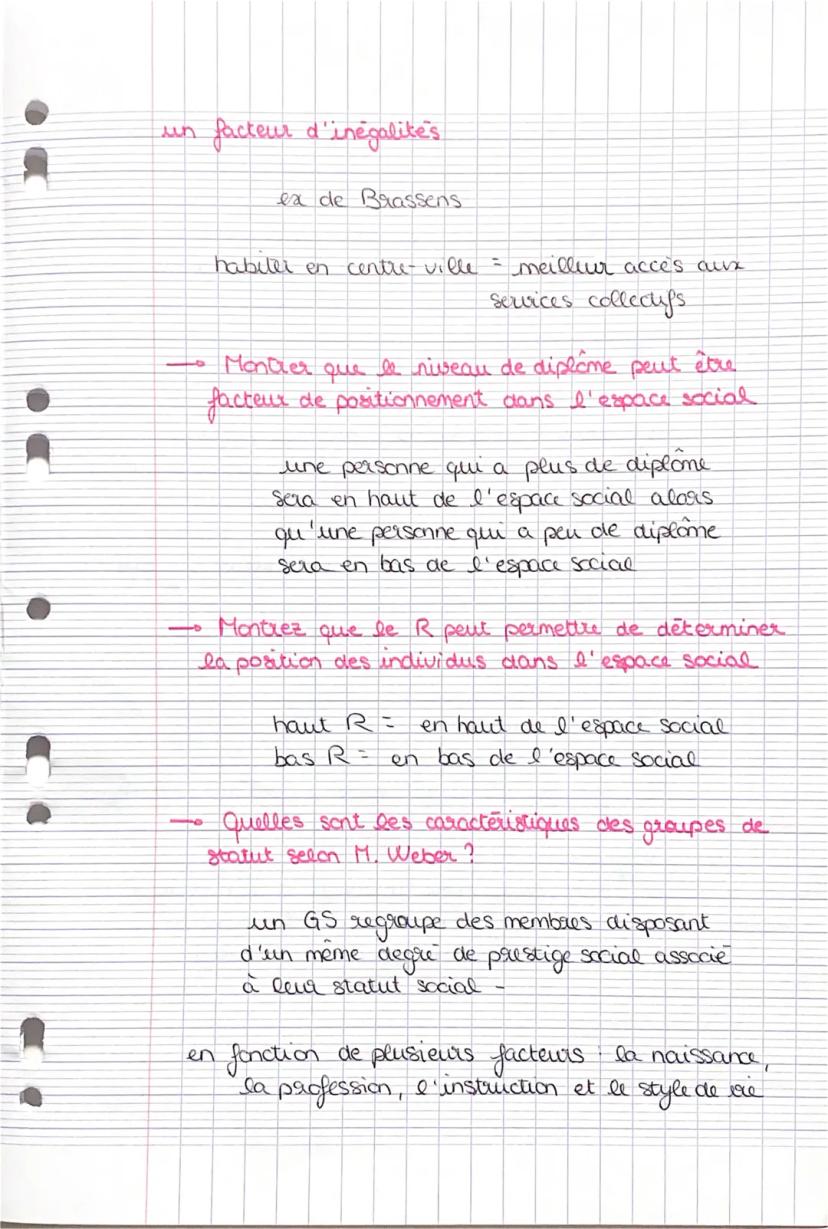 un facteur d'inégalités
ex de Brassens
habiter en centre-ville = meilleur accès aux
services collectifs
→ Montrer que le niveau de diplôme peut être
facteur de positionnement dans l'espace social
une personne qui a plus de diplôme
sera en haut de l'espace social alors
qu'une personne qui a peu de diplôme
sera en bas de l'espace social
→ Montrez que le R peut permettre de déterminer
la position des individus dans l'espace social
haut R = en haut de l'espace social
bas R = en bas de l'espace social
→ Quelles sont les caractéristiques des groupes de
statut selon M. Weber ?
un GS regroupe des membres disposant
d'un même degré de prestige social associé
à leur statut social -
en fonction de plusieurs facteurs : la naissance,
la profession, l'instruction et le style de vie